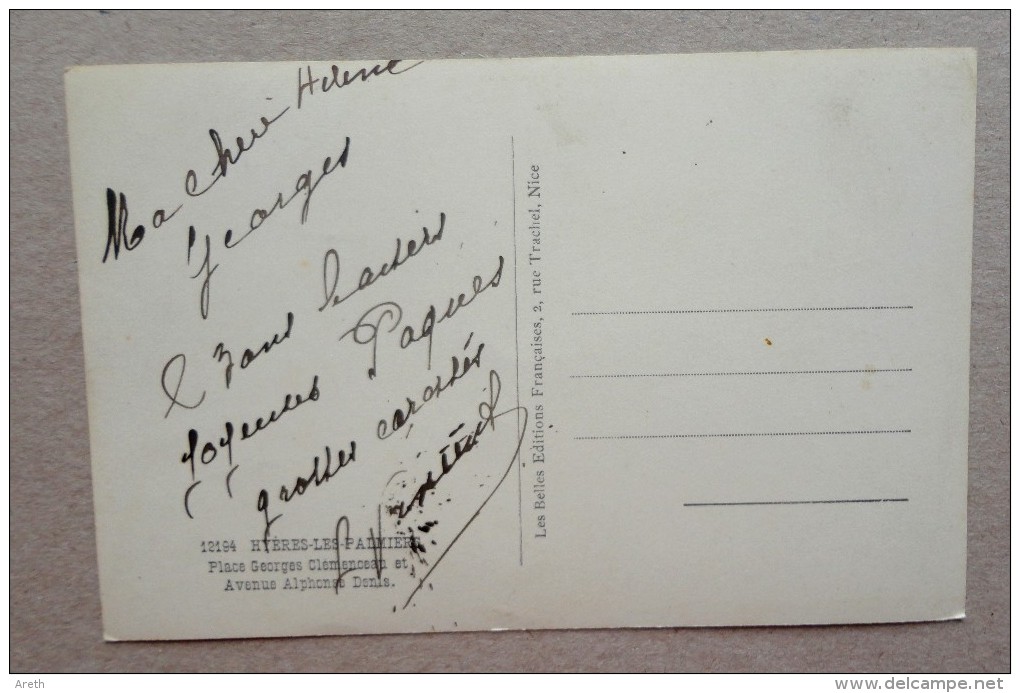 Ma cherie Helene
Georges
baisers
joyeuses Paques
grosses
12194 HYÈRES-LES-PALMIERS
Place Georges Clémenceau et
Avenue Alphonse Denis.
Les Belles Editions Françaises, 2, rue Trachel, Nice
Areth
http://www.delcampe.net